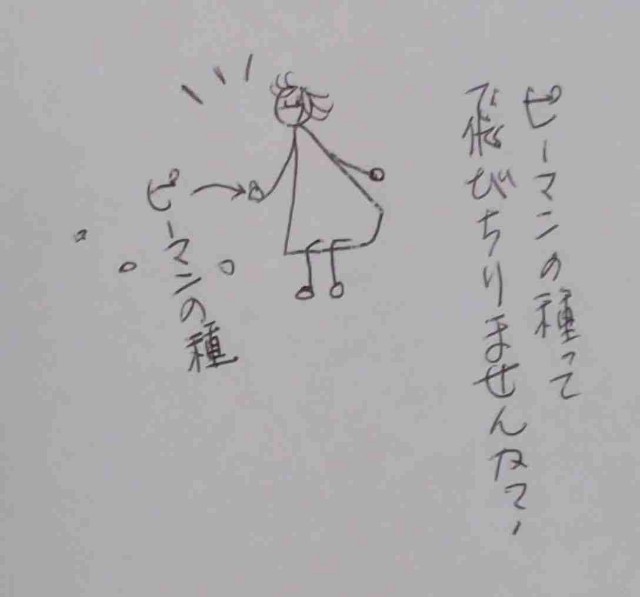 ピーマンの種って
飛びちりませんか？
ピーマンの種